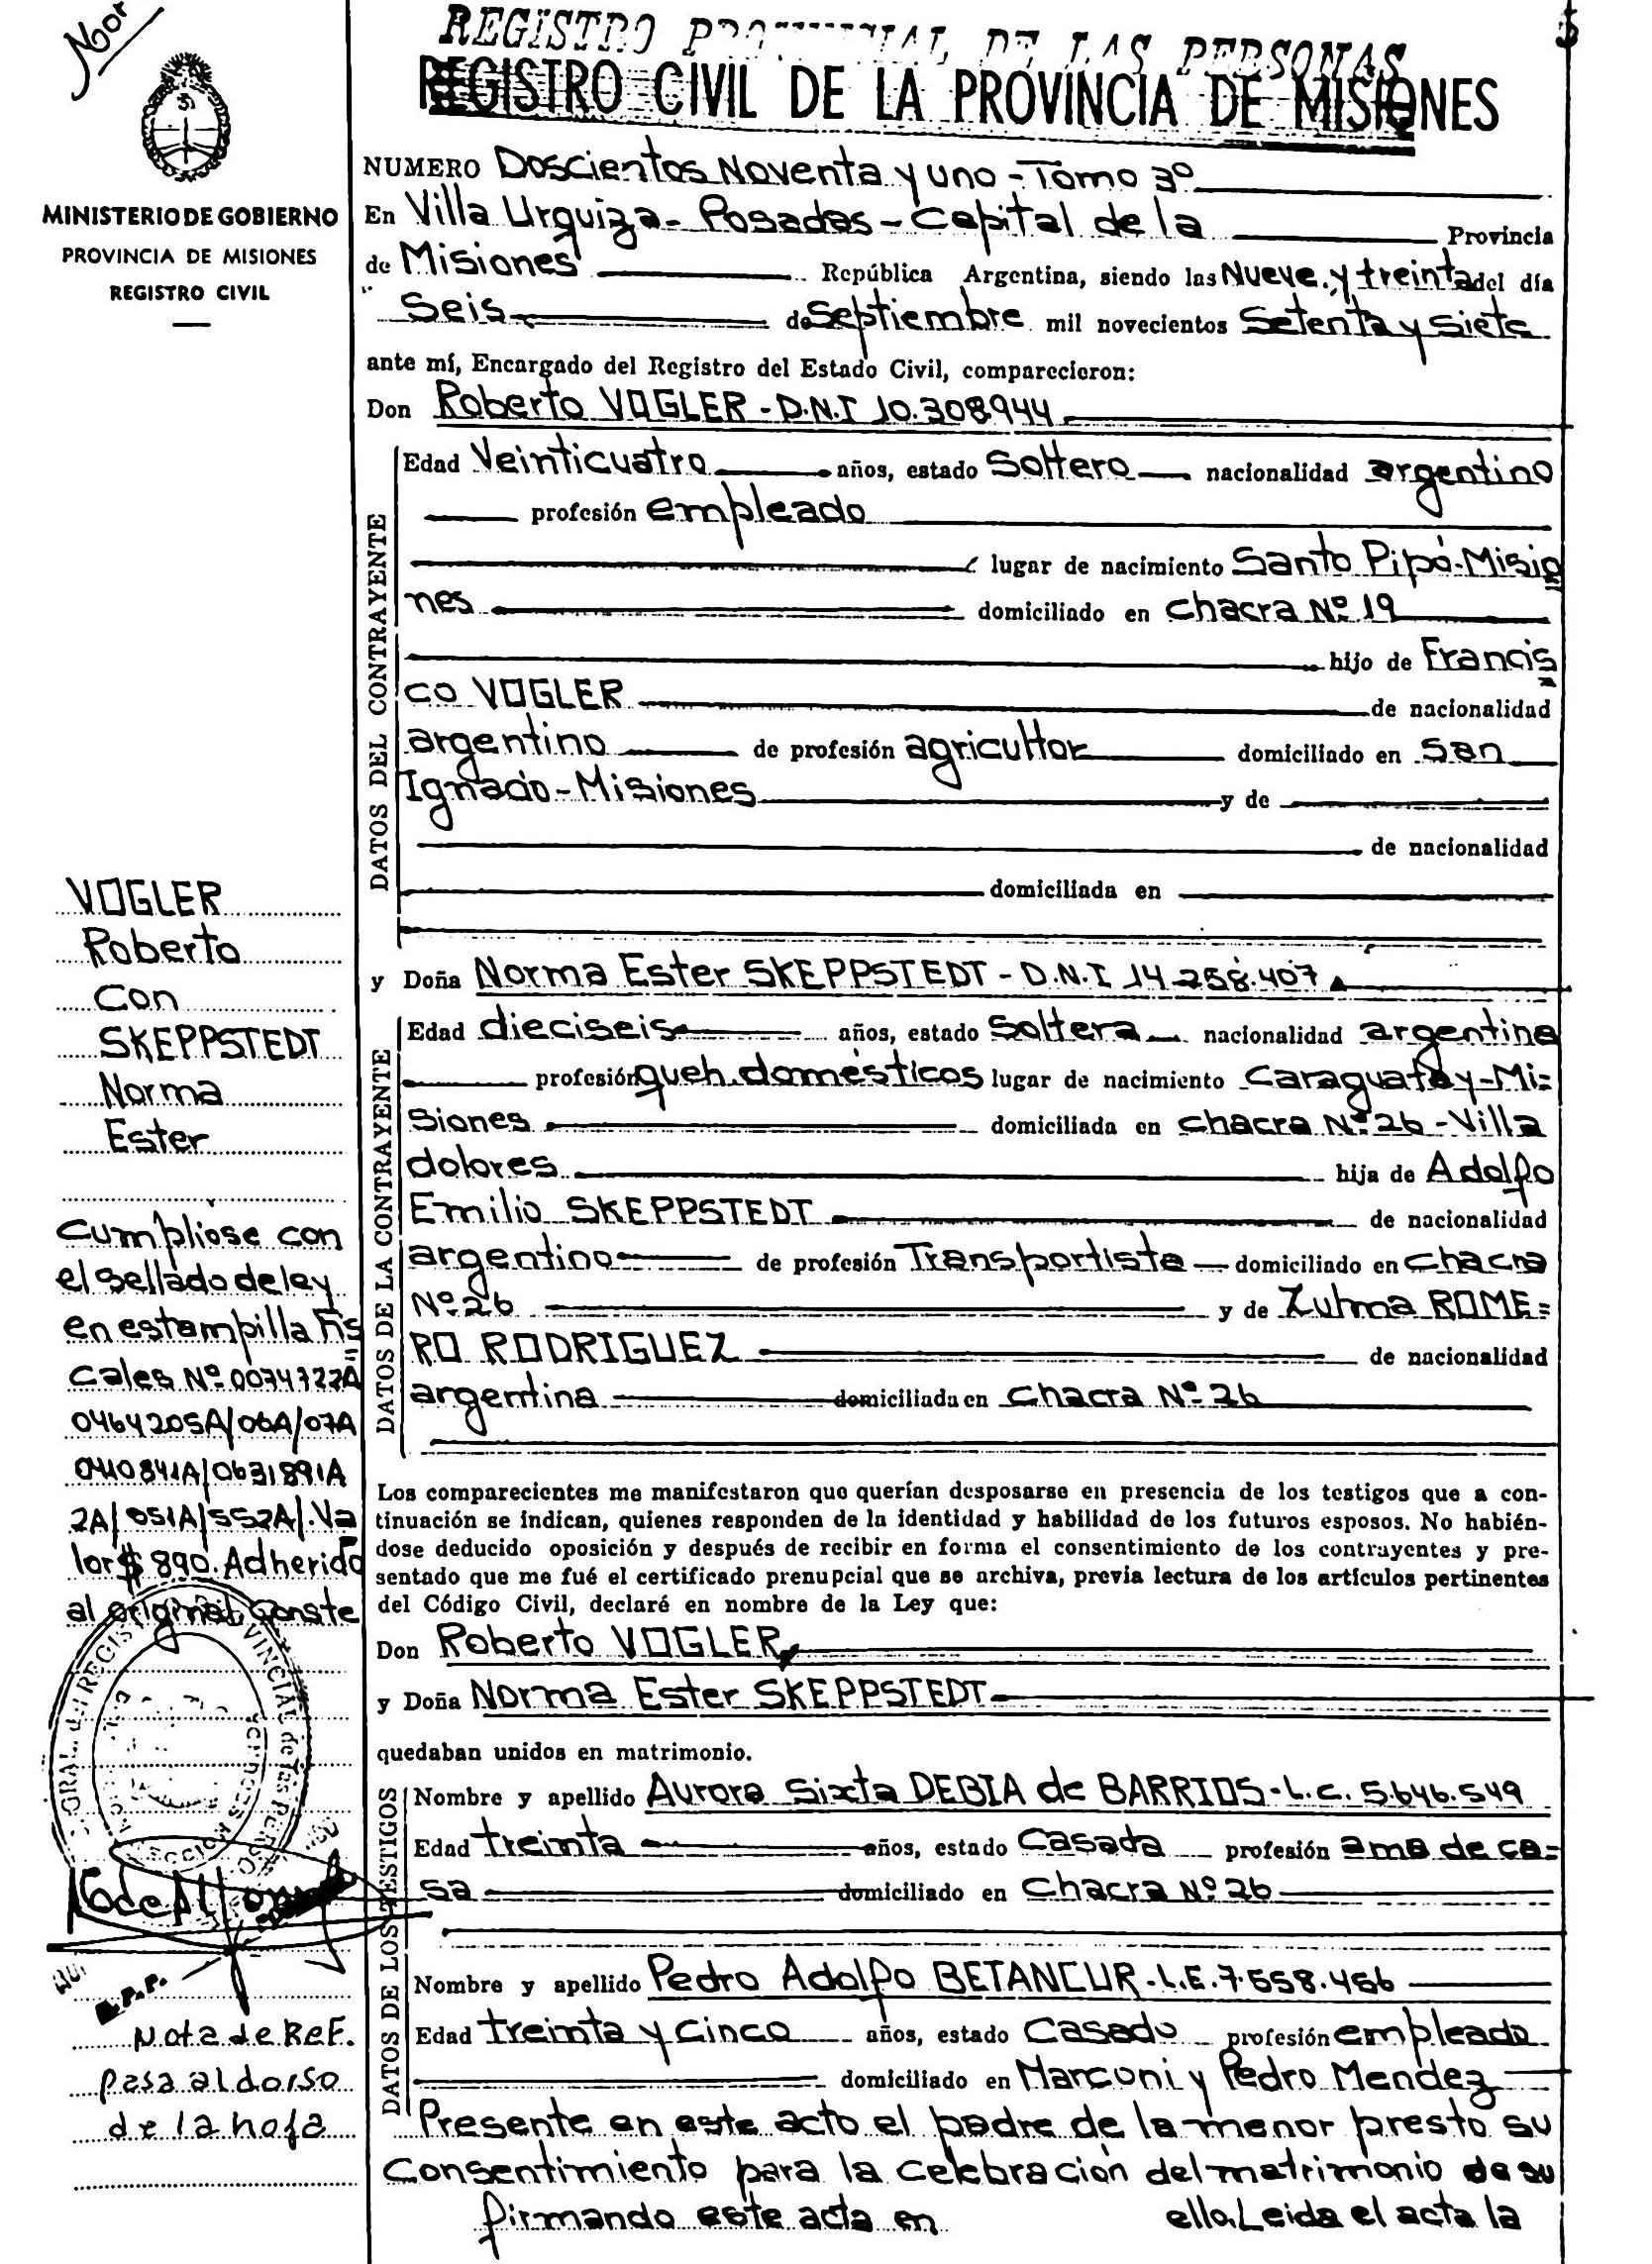 Nor
REGISTRO PROVINCIAL DE LAS PERSONAS
REGISTRO CIVIL DE LA PROVINCIA DE MISIONES
MINISTERIO DE GOBIERNO
PROVINCIA DE MISIONES
REGISTRO CIVIL
NUMERO Doscientos Noventa y uno - Tomo 3º
En Villa Urquiza - Posadas - Capital de la Provincia
de Misiones República Argentina, siendo las Nueve y treinta del día
Seis de Septiembre mil novecientos Setenta y Siete
ante mí, Encargado del Registro del Estado Civil, comparecieron:
Don Roberto VOGLER - D.N.I 10.308944
DATOS DEL CONTRAYENTE
Edad Veinticuatro años, estado Soltero nacionalidad argentino
profesión empleado
lugar de nacimiento Santo Pipó - Misio
nes domiciliado en chacra Nº 19
hijo de Francis
co VOGLER de nacionalidad
argentino de profesión agricultor domiciliado en San
Ignacio - Misiones y de
de nacionalidad
domiciliada en
y Doña Norma Ester SKEPPSTEDT - D.N.I 14.258.407
DATOS DE LA CONTRAYENTE
Edad dieciseis años, estado Soltera nacionalidad argentina
profesión queh. domésticos lugar de nacimiento Caraguatay - Mi=
siones domiciliada en chacra Nº 26 - Villa
dolores hija de Adolfo
Emilio SKEPPSTEDT de nacionalidad
argentino de profesión Transportista domiciliado en chacra
Nº 26 y de Zulma ROME=
RO RODRIGUEZ de nacionalidad
argentina domiciliada en chacra Nº 26
Los comparecientes me manifestaron que querían desposarse en presencia de los testigos que a con-
tinuación se indican, quienes responden de la identidad y habilidad de los futuros esposos. No habién-
dose deducido oposición y después de recibir en forma el consentimiento de los contrayentes y pre-
sentado que me fué el certificado prenupcial que se archiva, previa lectura de los artículos pertinentes
del Código Civil, declaré en nombre de la Ley que:
Don Roberto VOGLER
y Doña Norma Ester SKEPPSTEDT
quedaban unidos en matrimonio.
DATOS DE LOS TESTIGOS
Nombre y apellido Aurora Sixta DEBIA de BARRIOS - L.C. 5.646.549
Edad treinta años, estado Casada profesión ama de ca=
sa domiciliado en Chacra Nº 26
Nombre y apellido Pedro Adolfo BETANCUR - L.E. 7.558.456
Edad treinta y Cinco años, estado Casado profesión empleado
domiciliado en Marconi y Pedro Mendez
Presente en este acto el padre de la menor presto su
Consentimiento para la celebración del matrimonio de su
firmando este acta en ella. Leida el acta la
VOGLER
Roberto
Con
SKEPPSTEDT
Norma
Ester
Cumpliose con
el sellado de ley
en estampilla fis
cales Nº 0074722A
0464205A/06A/07A
0410841A/0631891A
2A/051A/552A/. Va
lor $ 890. Adherido
al original. Conste
Nota de Ref.
pasa al dorso
de la hoja